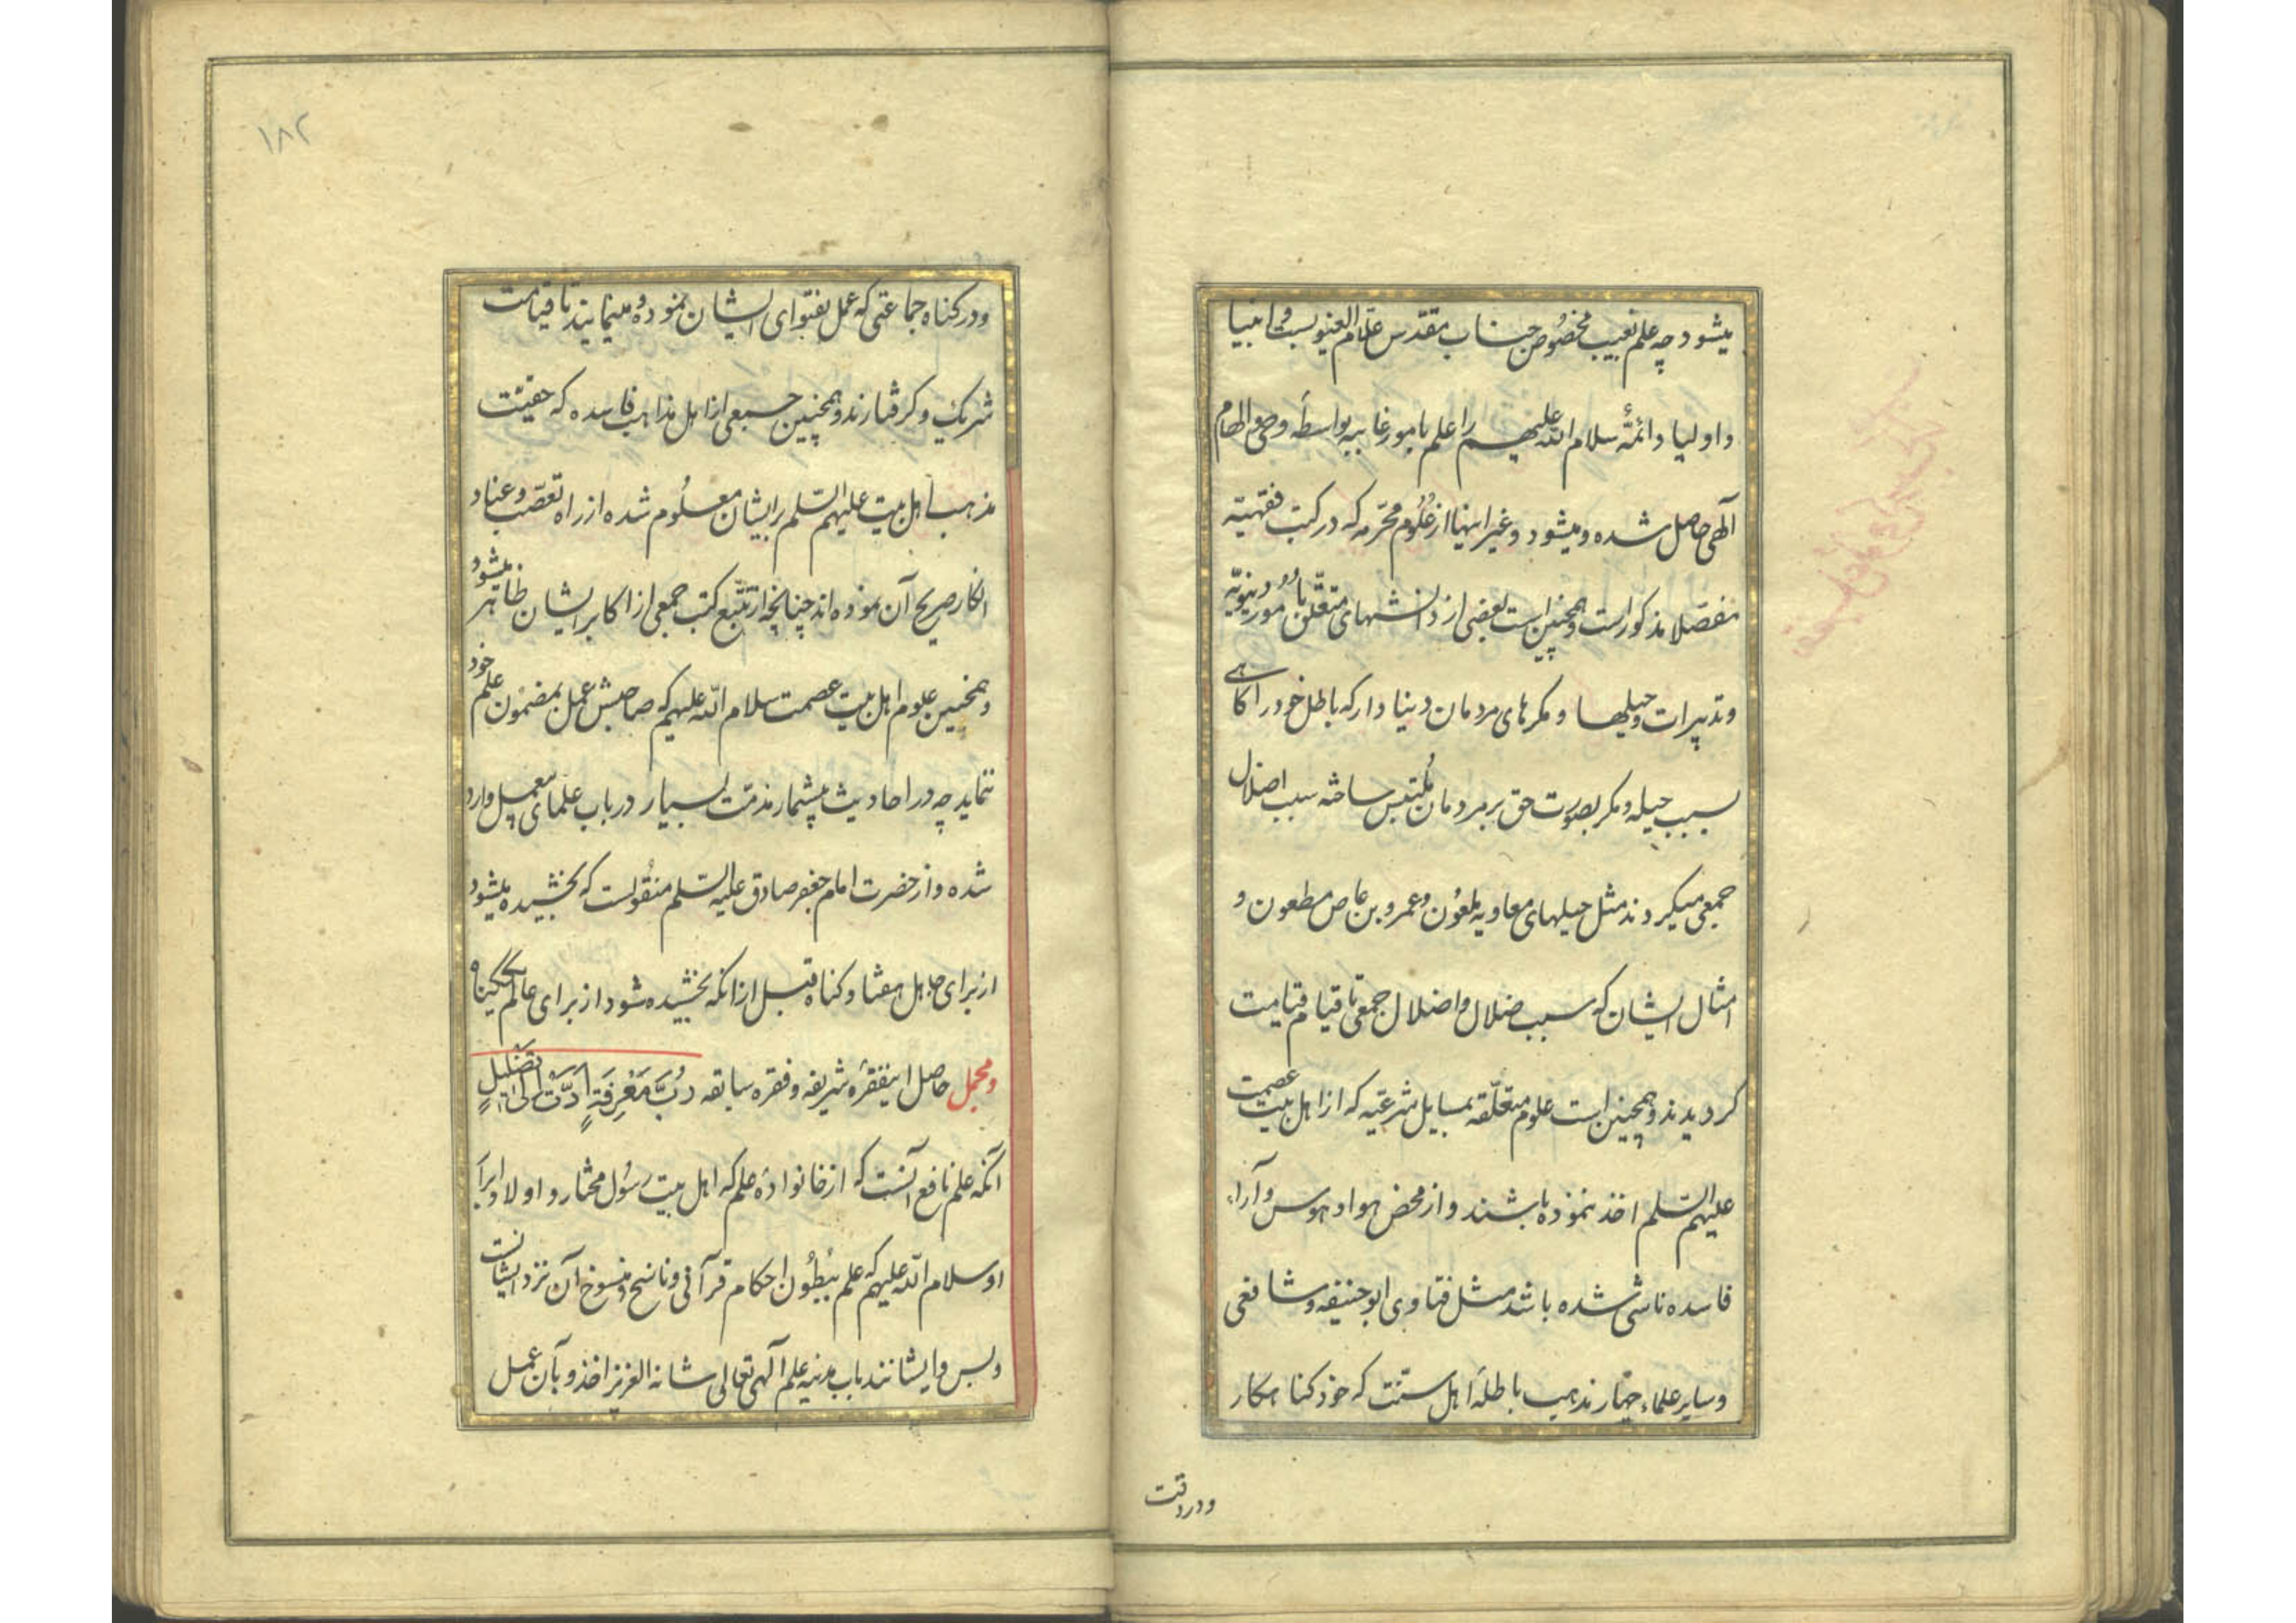 میشود چه علم بغیب مخصوص جناب مقدس علام الغیوبست و انبیا
و اولیا و ائمهٔ سلام الله علیهم را علم بامور غایبه بواسطهٔ وحی و الهام
آلهی حاصل شده و میشود و غیر اینها از علوم محرّمه که در کتب فقهیّه
مفصّلا مذکور است و همچنین است بعضی از دانشهای متعلّق بامور دنیویّه
و تدبیرات و حیلها و مکرهای مردمان دنیا دار که باطل خود را گاهی
بسبب حیله و مکر بصورت حق بر مردمان مُلتبس ساخته سبب اضلال
جمعی میکردند مثل حیلهای معاویه ملعون و عمرو بن عاص مطعون و
امثال ایشان که سبب ضلال و اضلال جمعی تا قیام قیامت
کردیدند و همچنین است علوم متعلّقه بمسایل شرعیّه که از اهل بیت عصمت
علیهم السّلم اخذ ننموده باشند و از محض هوا و هوس و آراء
فاسده ناشی شده باشد مثل فتاوی ابو حنیفه و شافعی
و سایر علماء چهار مذهب باطلهٔ اهل سنّت که خود کناهکار
ودردقت
١٨٢
و در کناه جماعتی که عمل بفتوای ایشان نموده و مینمایند تا قیامت
شریک و کرفتارند و همچنین جمعی از اهل مذاهب فاسده که حقیّت
مذهب اهل بیت علیهم السّلم برایشان معلوم شده از راه تعصّب و عناد
انکار صریح آن نموده اند چنانچه از تتبّع کتب جمعی از اکابر ایشان ظاهر میشود
و همچنین علوم اهل بیت عصمت سلام الله علیهم که صاحبش عمل بمضمون علم خود
ننماید چه در احادیث بیشمار مذمّت بسیار در باب علمای بیعمل وارد
شده و از حضرت امام جعفر صادق علیه السّلم منقولست که بخشیده میشود
از برای جاهل هفتاد کناه قبل از انکه بخشیده شود از برای عالم یکگناه
و مجمل حاصل اینفقرهٔ شریفه و فقره سابقه رُبَّ مَعْرِفَةٍ اَدَّتْ اِلیٰ تَضْلِیلٍ
آنکه علم نافع آنست که از خانوادهٔ علم که اهل بیت رسول مختار و اولاد ابرار
او سلام الله علیهم که علم ببُطون احکام قرآنی و ناسخ و منسوخ آن نزد ایشانست
و بس و ایشانند باب مدینه علم آلهی تعالی شانه العزیز اخذ و بآن عمل